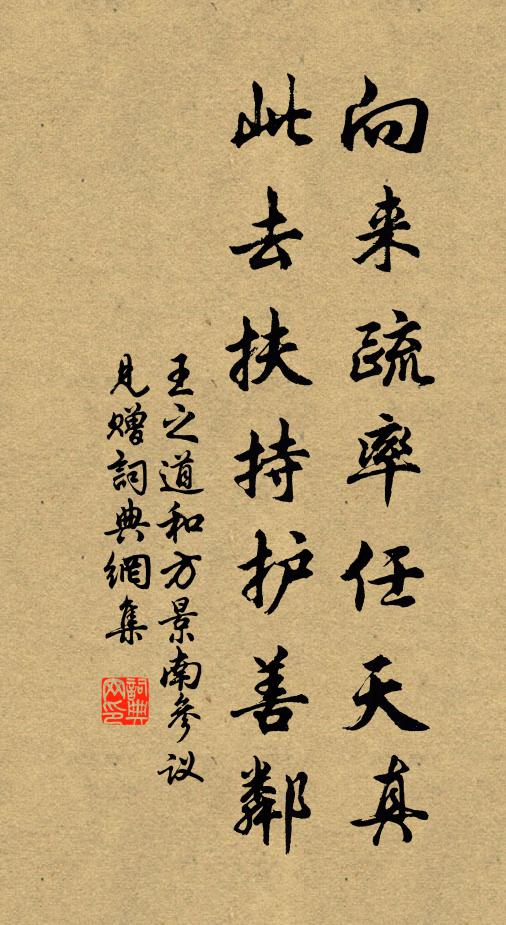 向来疏率任天真
此去扶持护善鄰
王之道和方景南參议
见赠詞典網集
詞典
网印